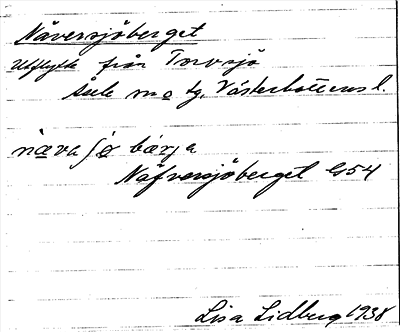 Näversjöberget
Utflytte från Torvsjö
Åsele m o tg. Västerbottens l.
Näfversjöberget G54
Lisa Lidberg 1938